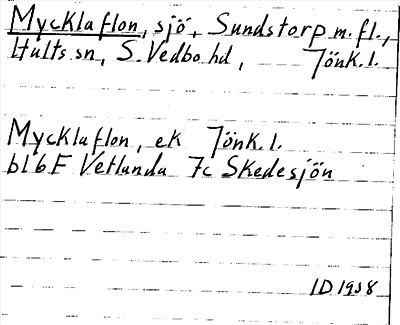 Mycklaflon, sjö, Sundstorp m.fl.,
Hults sn, S. Vedbo hd, Jönk.l.
Mycklaflon, ek Jönk.l.
bl 6F Vetlanda 7c Skedesjön
ID 1938